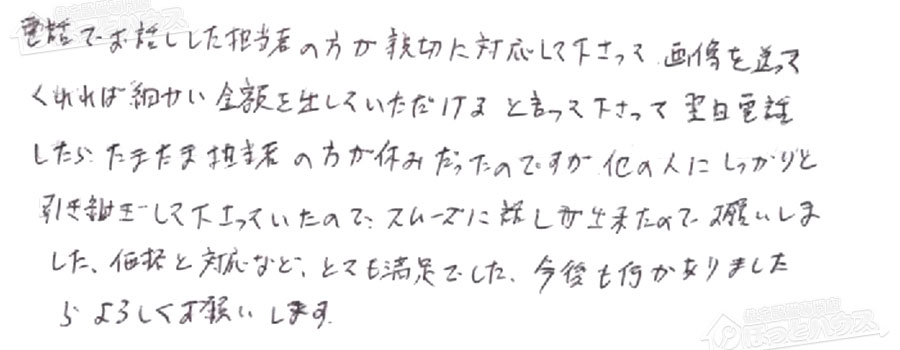 電話でお話しした担当者の方が親切に対応して下さって 画像を送って
くれれば細かい金額を出していただけると言って下さって 翌日電話
したら たまたま担当者の方が休みだったのですが 他の人にしっかりと
引き継ぎして下さっていたので、スムーズに話しが出来たので お願いしま
した、価格と対応など、とても満足でした、今後も何かありました
ら よろしくお願いします.
ほっとハウス